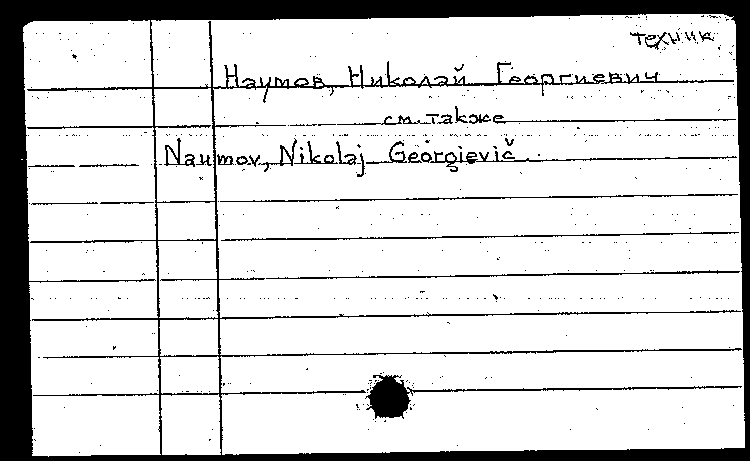 техник
Наумов, Николай Георгиевич
см. также
Naumov, Nikolaj Georgievič.